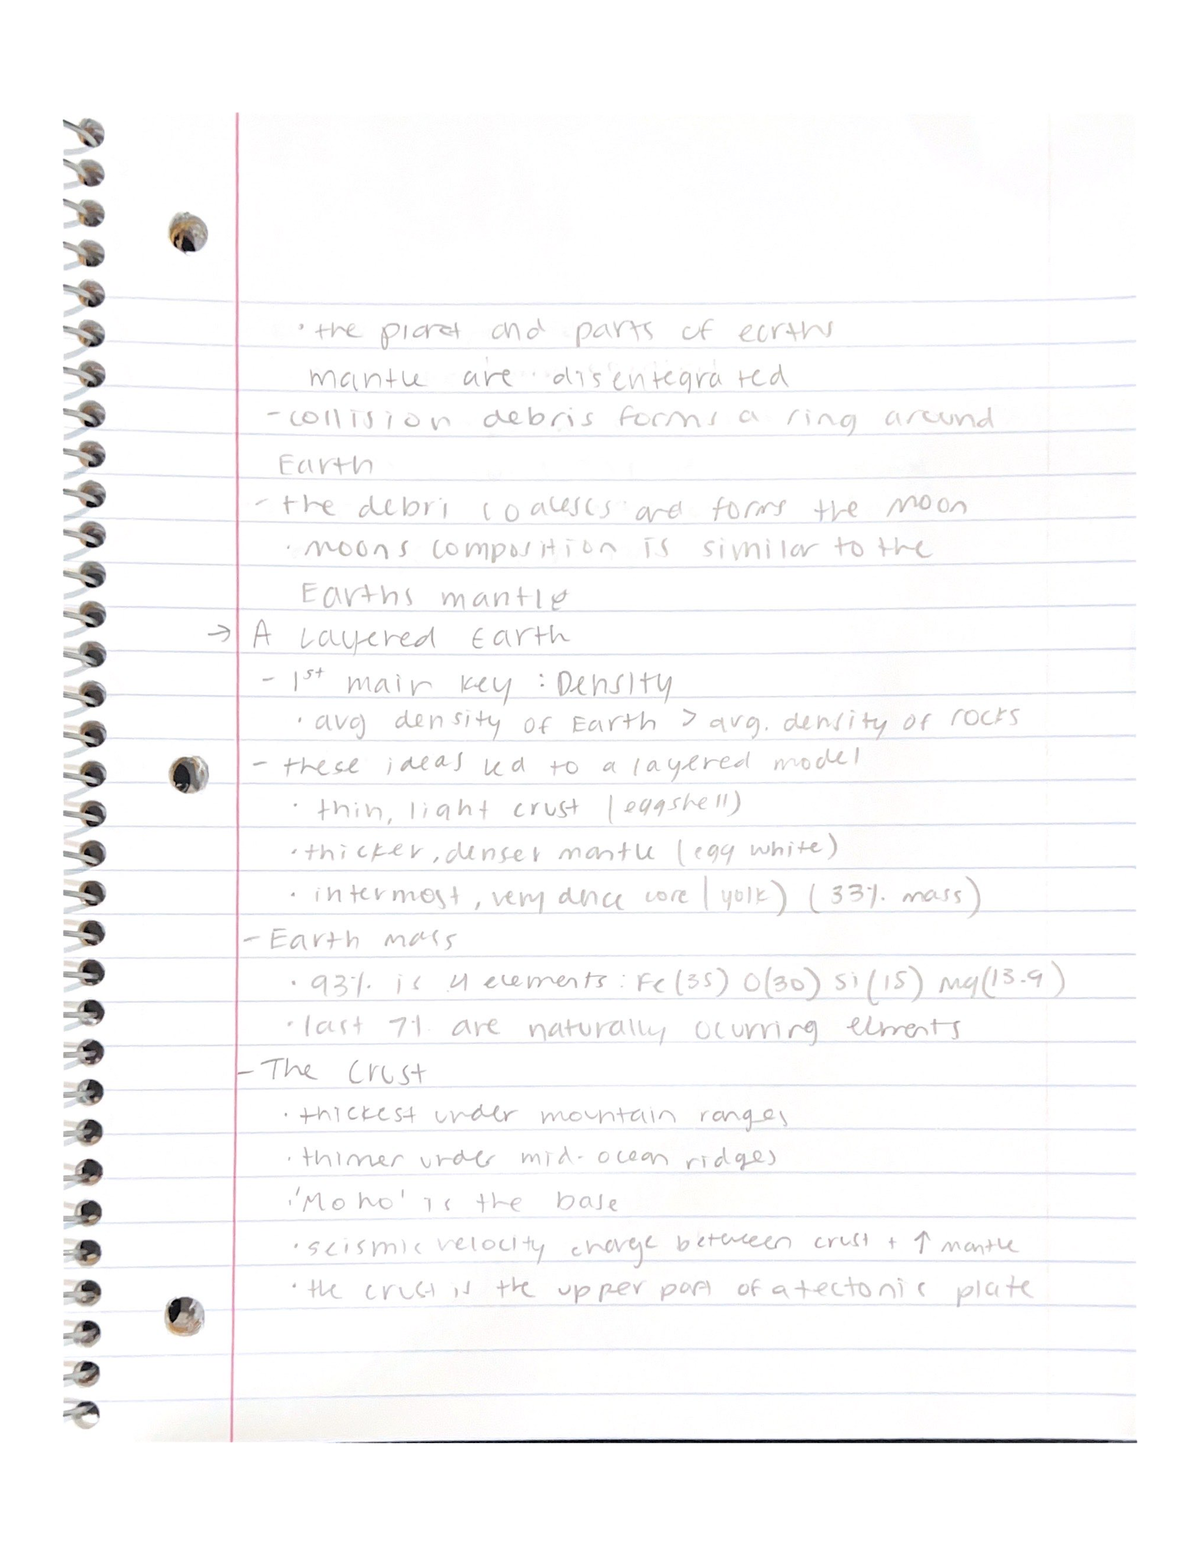 · the planet and parts of earths
mantle are disentegrated
- collision debris forms a ring around
Earth
- the debri coalescs and forms the moon
· moons composition is similar to the
Earths mantle
→ A Layered Earth
- 1st main key : Density
· avg density of Earth > avg. density of rocks
- these ideas led to a layered model
· thin, light crust (eggshell)
· thicker, denser mantle (egg white)
· intermost, very dnce core (yolk) (33% mass)
- Earth mass
· 93% is 4 elements : Fe(35) O(30) Si(15) Mg(13.9)
· last 7% are naturally ocurring elments
- The Crust
· thickest under mountain ranges
· thinner under mid-ocean ridges
· 'Moho' is the base
· seismic velocity change between crust + ↑ mantle
· the crust is the upper part of a tectonic plate